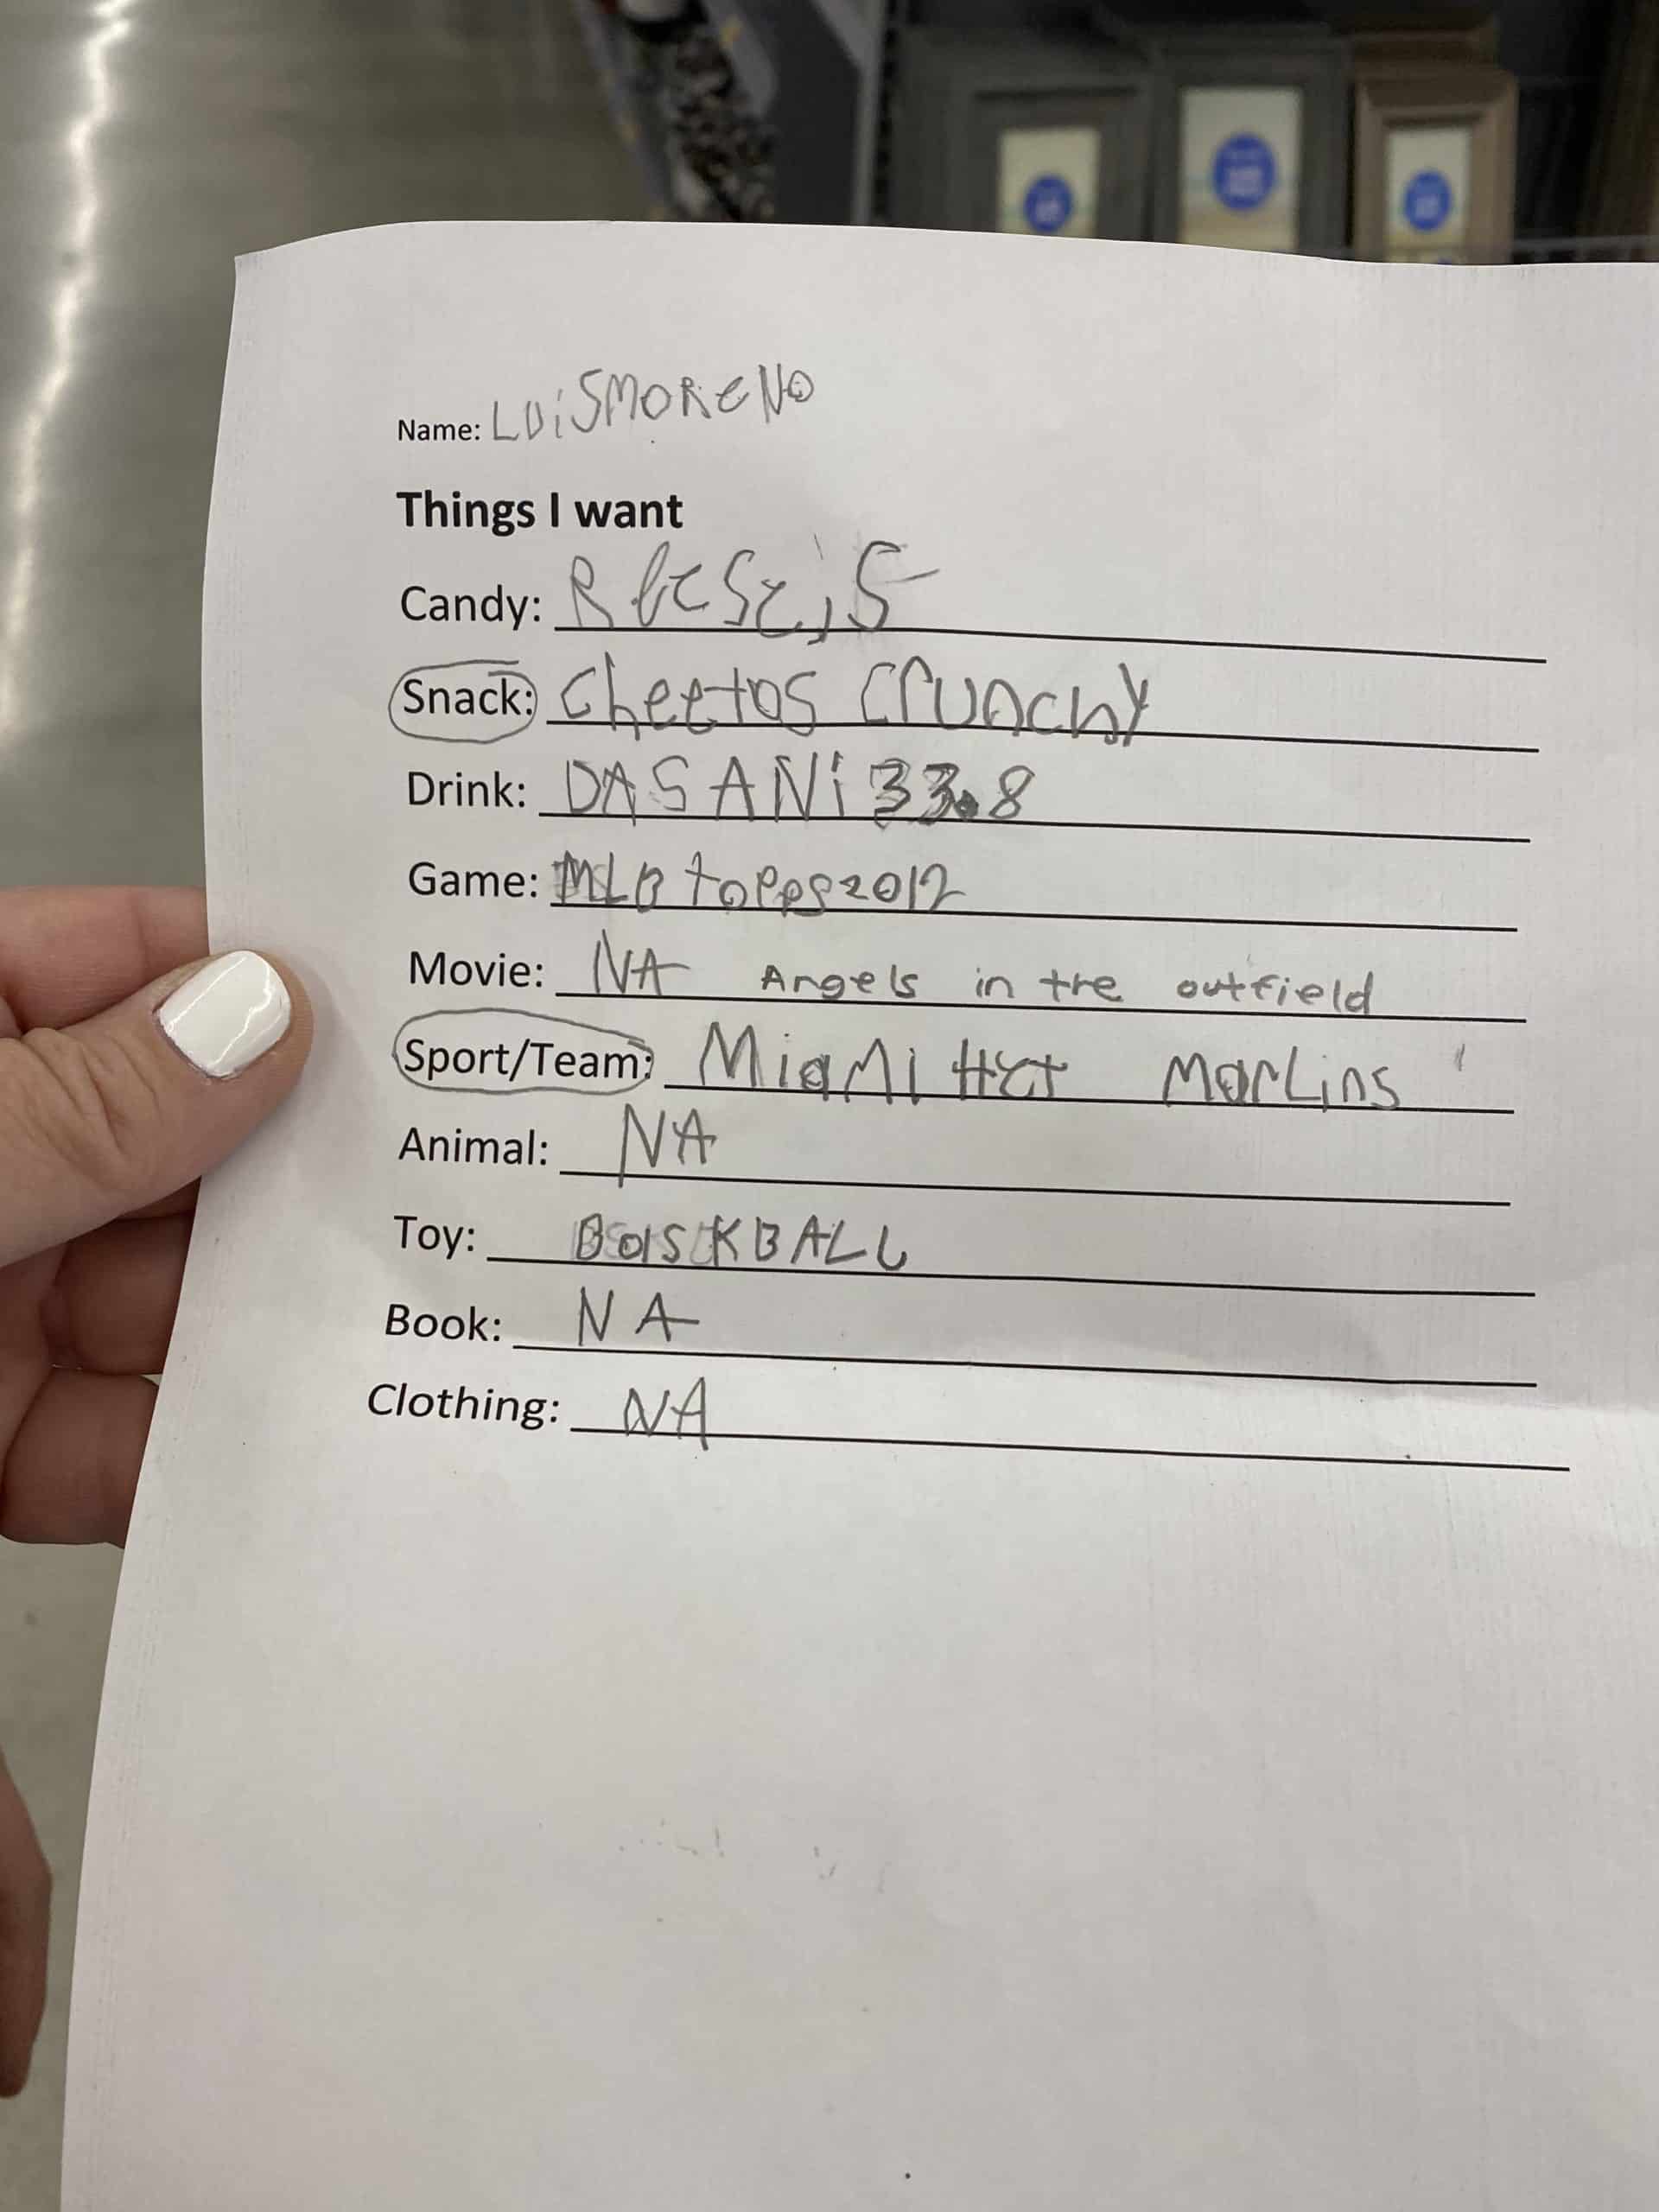 Name: LUiSMOReNO
Things I want
Candy: Reese,s
Snack: Cheetos Crunchy
Drink: DASANi 33.8
Game: MLB topps 2012
Movie: NA Angels in the outfield
Sport/Team: MiaMi Het MarLins
Animal: NA
Toy: BaSKBALL
Book: NA
Clothing: NA